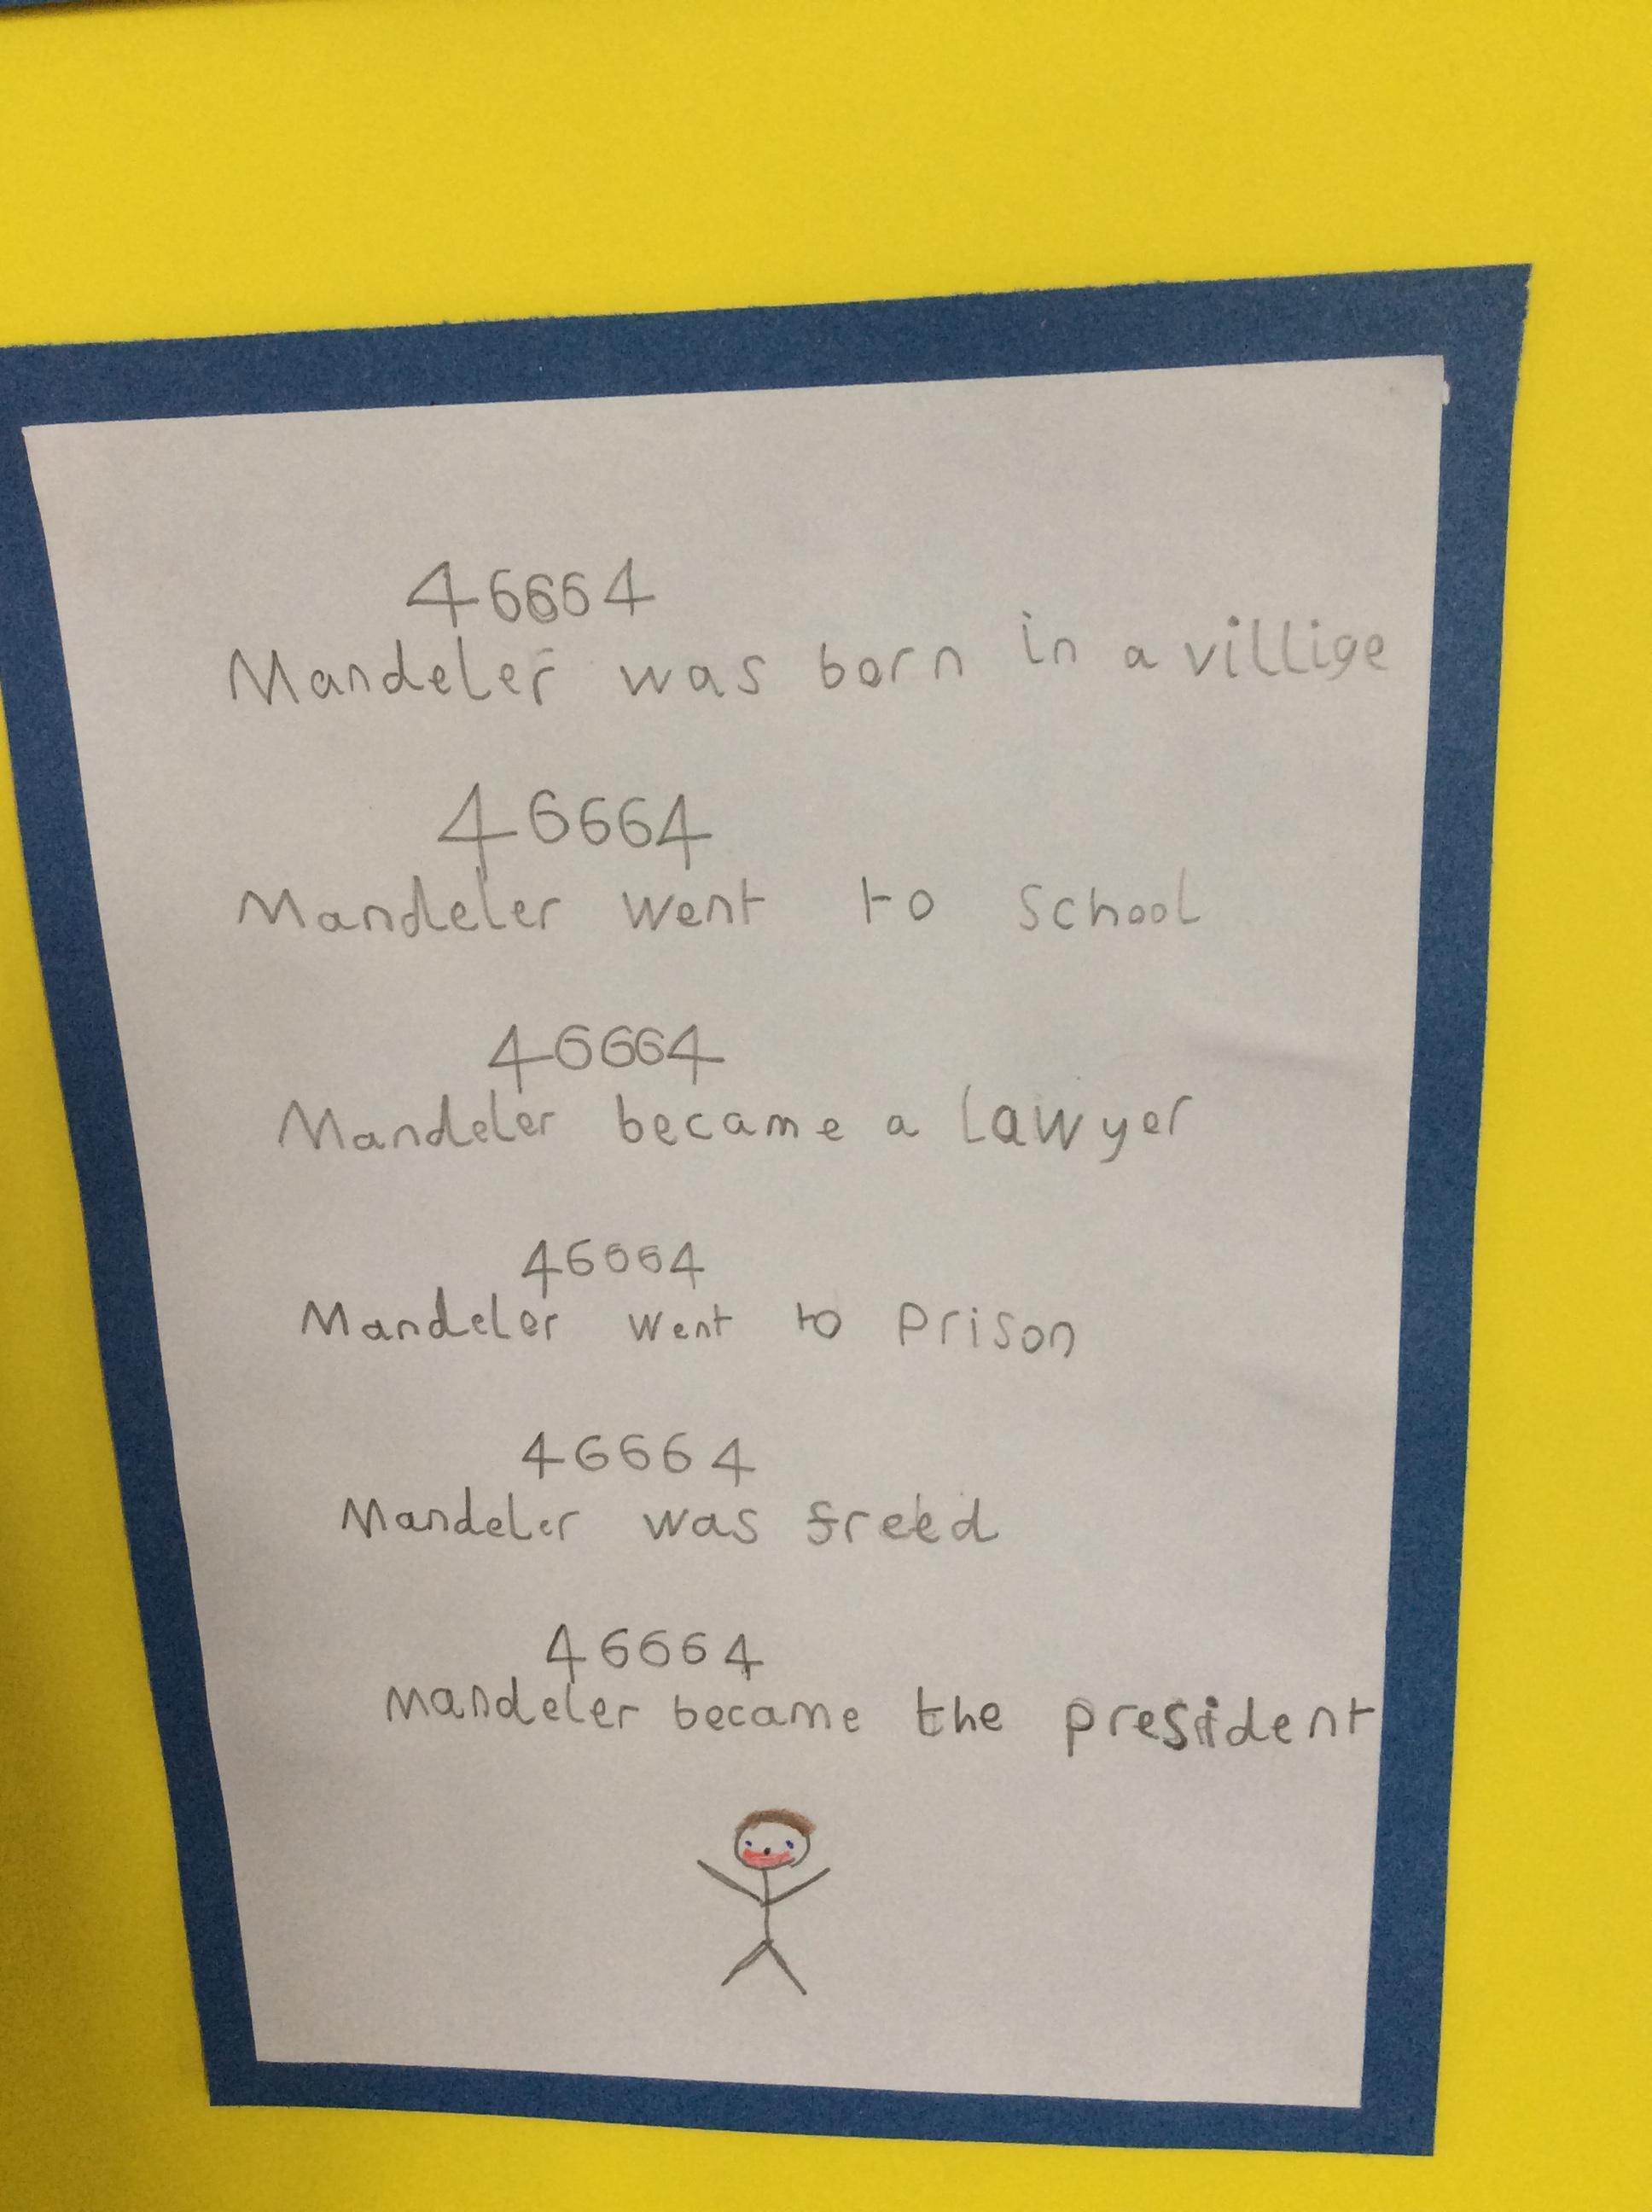 46664
Mandeler was born in a villige
46664
Mandeler went to school
46664
Mandeler became a lawyer
46664
Mandeler went to prison
46664
Mandeler was freed
46664
Mandeler became the president